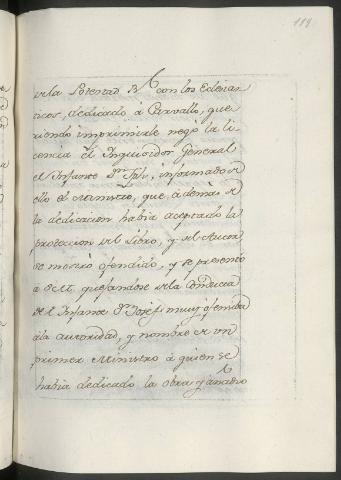 119
de la Potestad Rl con los Eclesias
ticos, dedicado à Carvallo, que
riendo imprimirle negò la li
cencia el Inquisidor General
el Infante Dn Jph, informado de
ello el Ministro, que àdemàs de
la dedicacion habia aceptado la
proteccion del Libro, y del Autor
se mostrò ofendido, y se presentò
à S.M. quejandose de la Conducta
del Infante Dn Josef muy ofensiva
à la autoridad, y nombre de un
primer Ministro à quien se
habia dedicado la obra, y añadiò